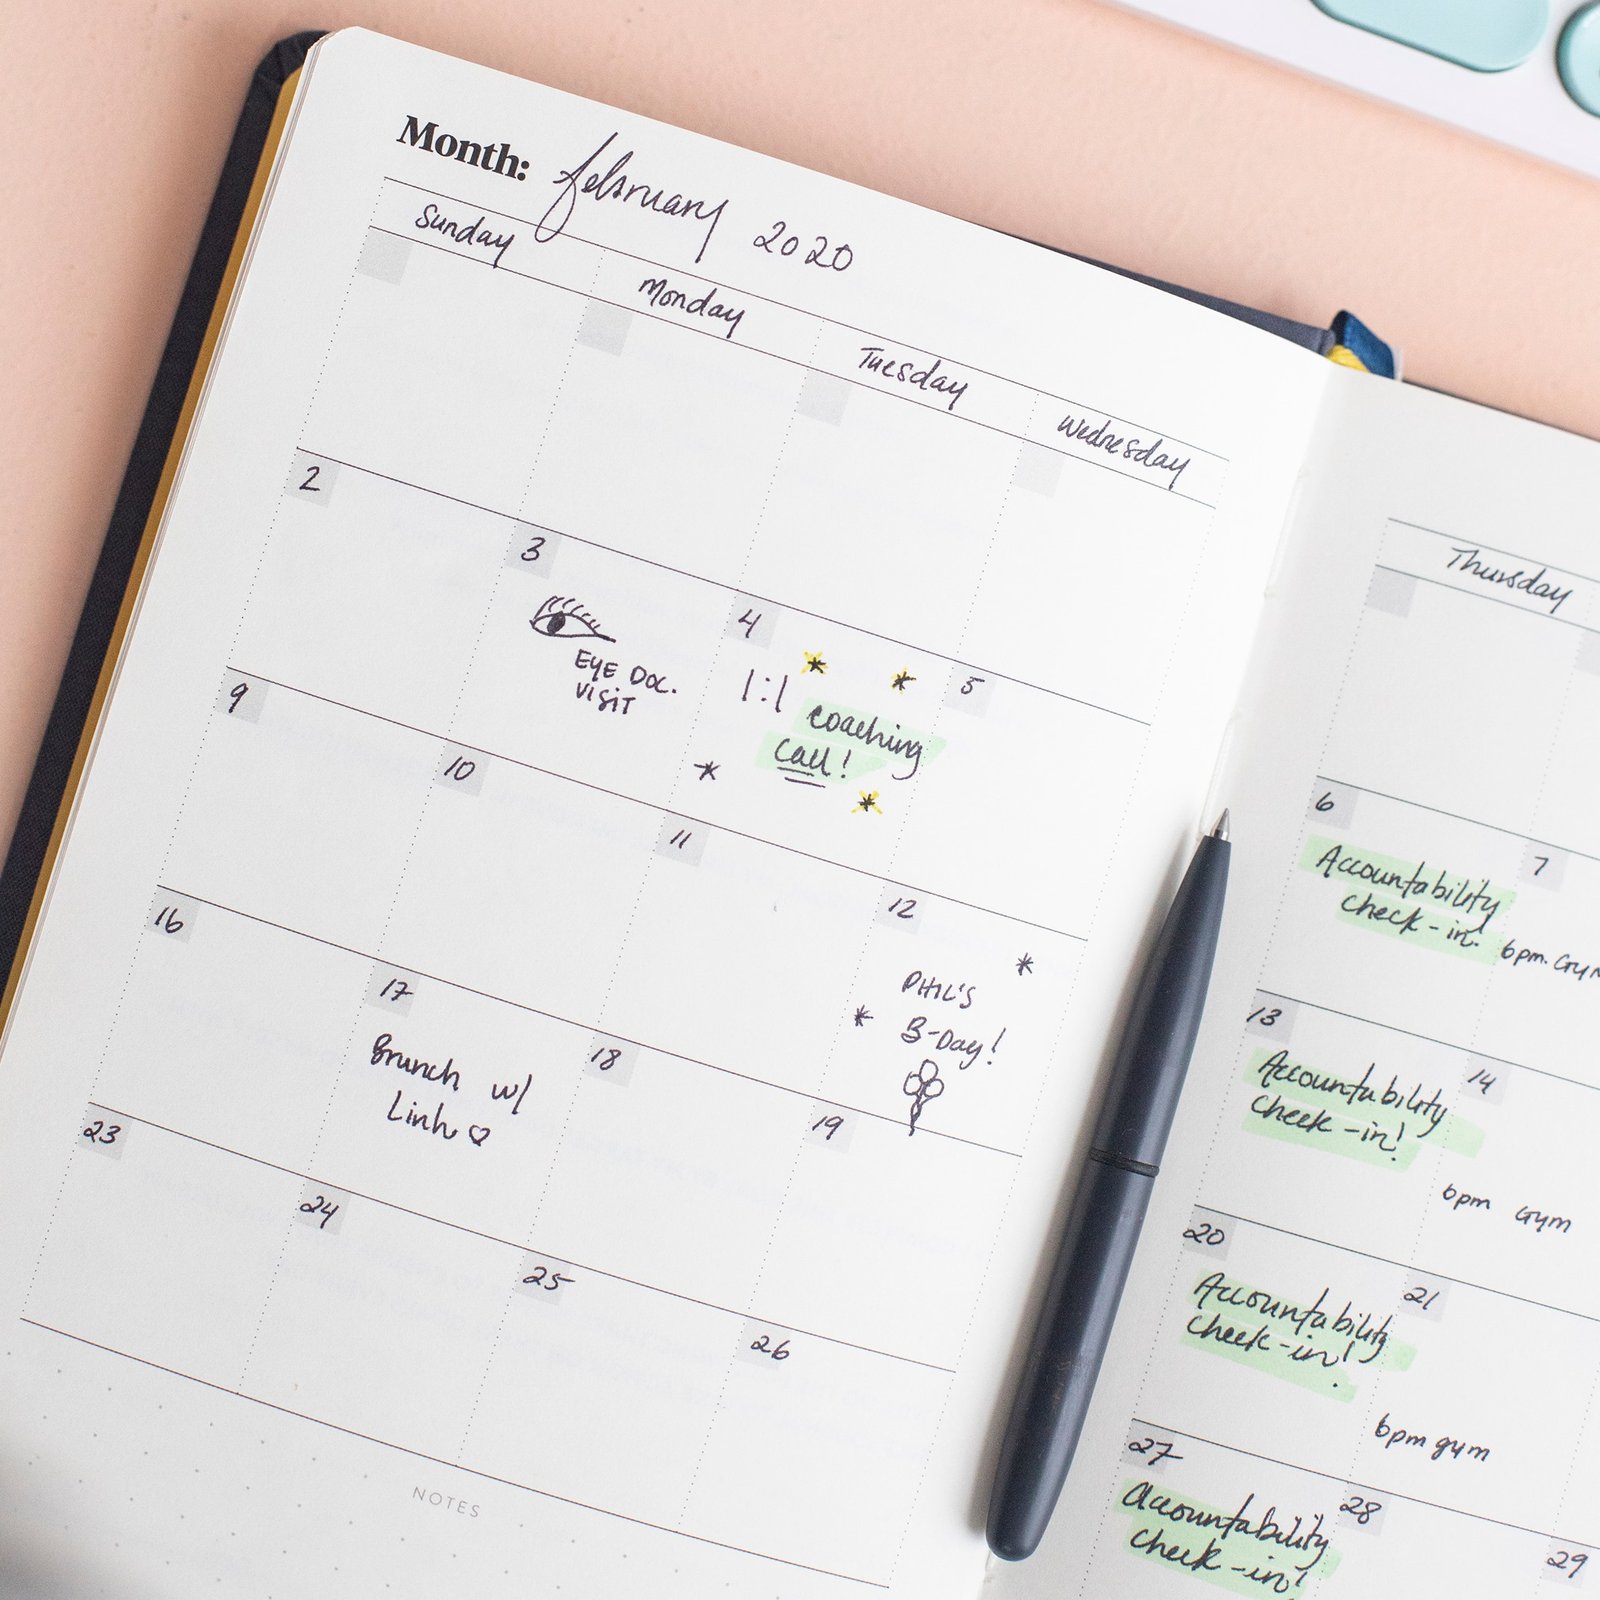 Month: february 2020
Sunday
Monday
Tuesday
Wednesday
2
3
EYE DOC.
VISIT
4
1:1
coaching
call!
5
9
10
11
12
PHIL'S
B-Day!
16
17
Brunch w/
Linh
18
19
23
24
25
26
NOTES
Thursday
6
Accountability
check-in!
7
6pm. Gym
13
Accountability
check-in!
14
6pm Gym
20
Accountability
check-in!
21
6pm gym
27
Accountability
check-in!
28
29